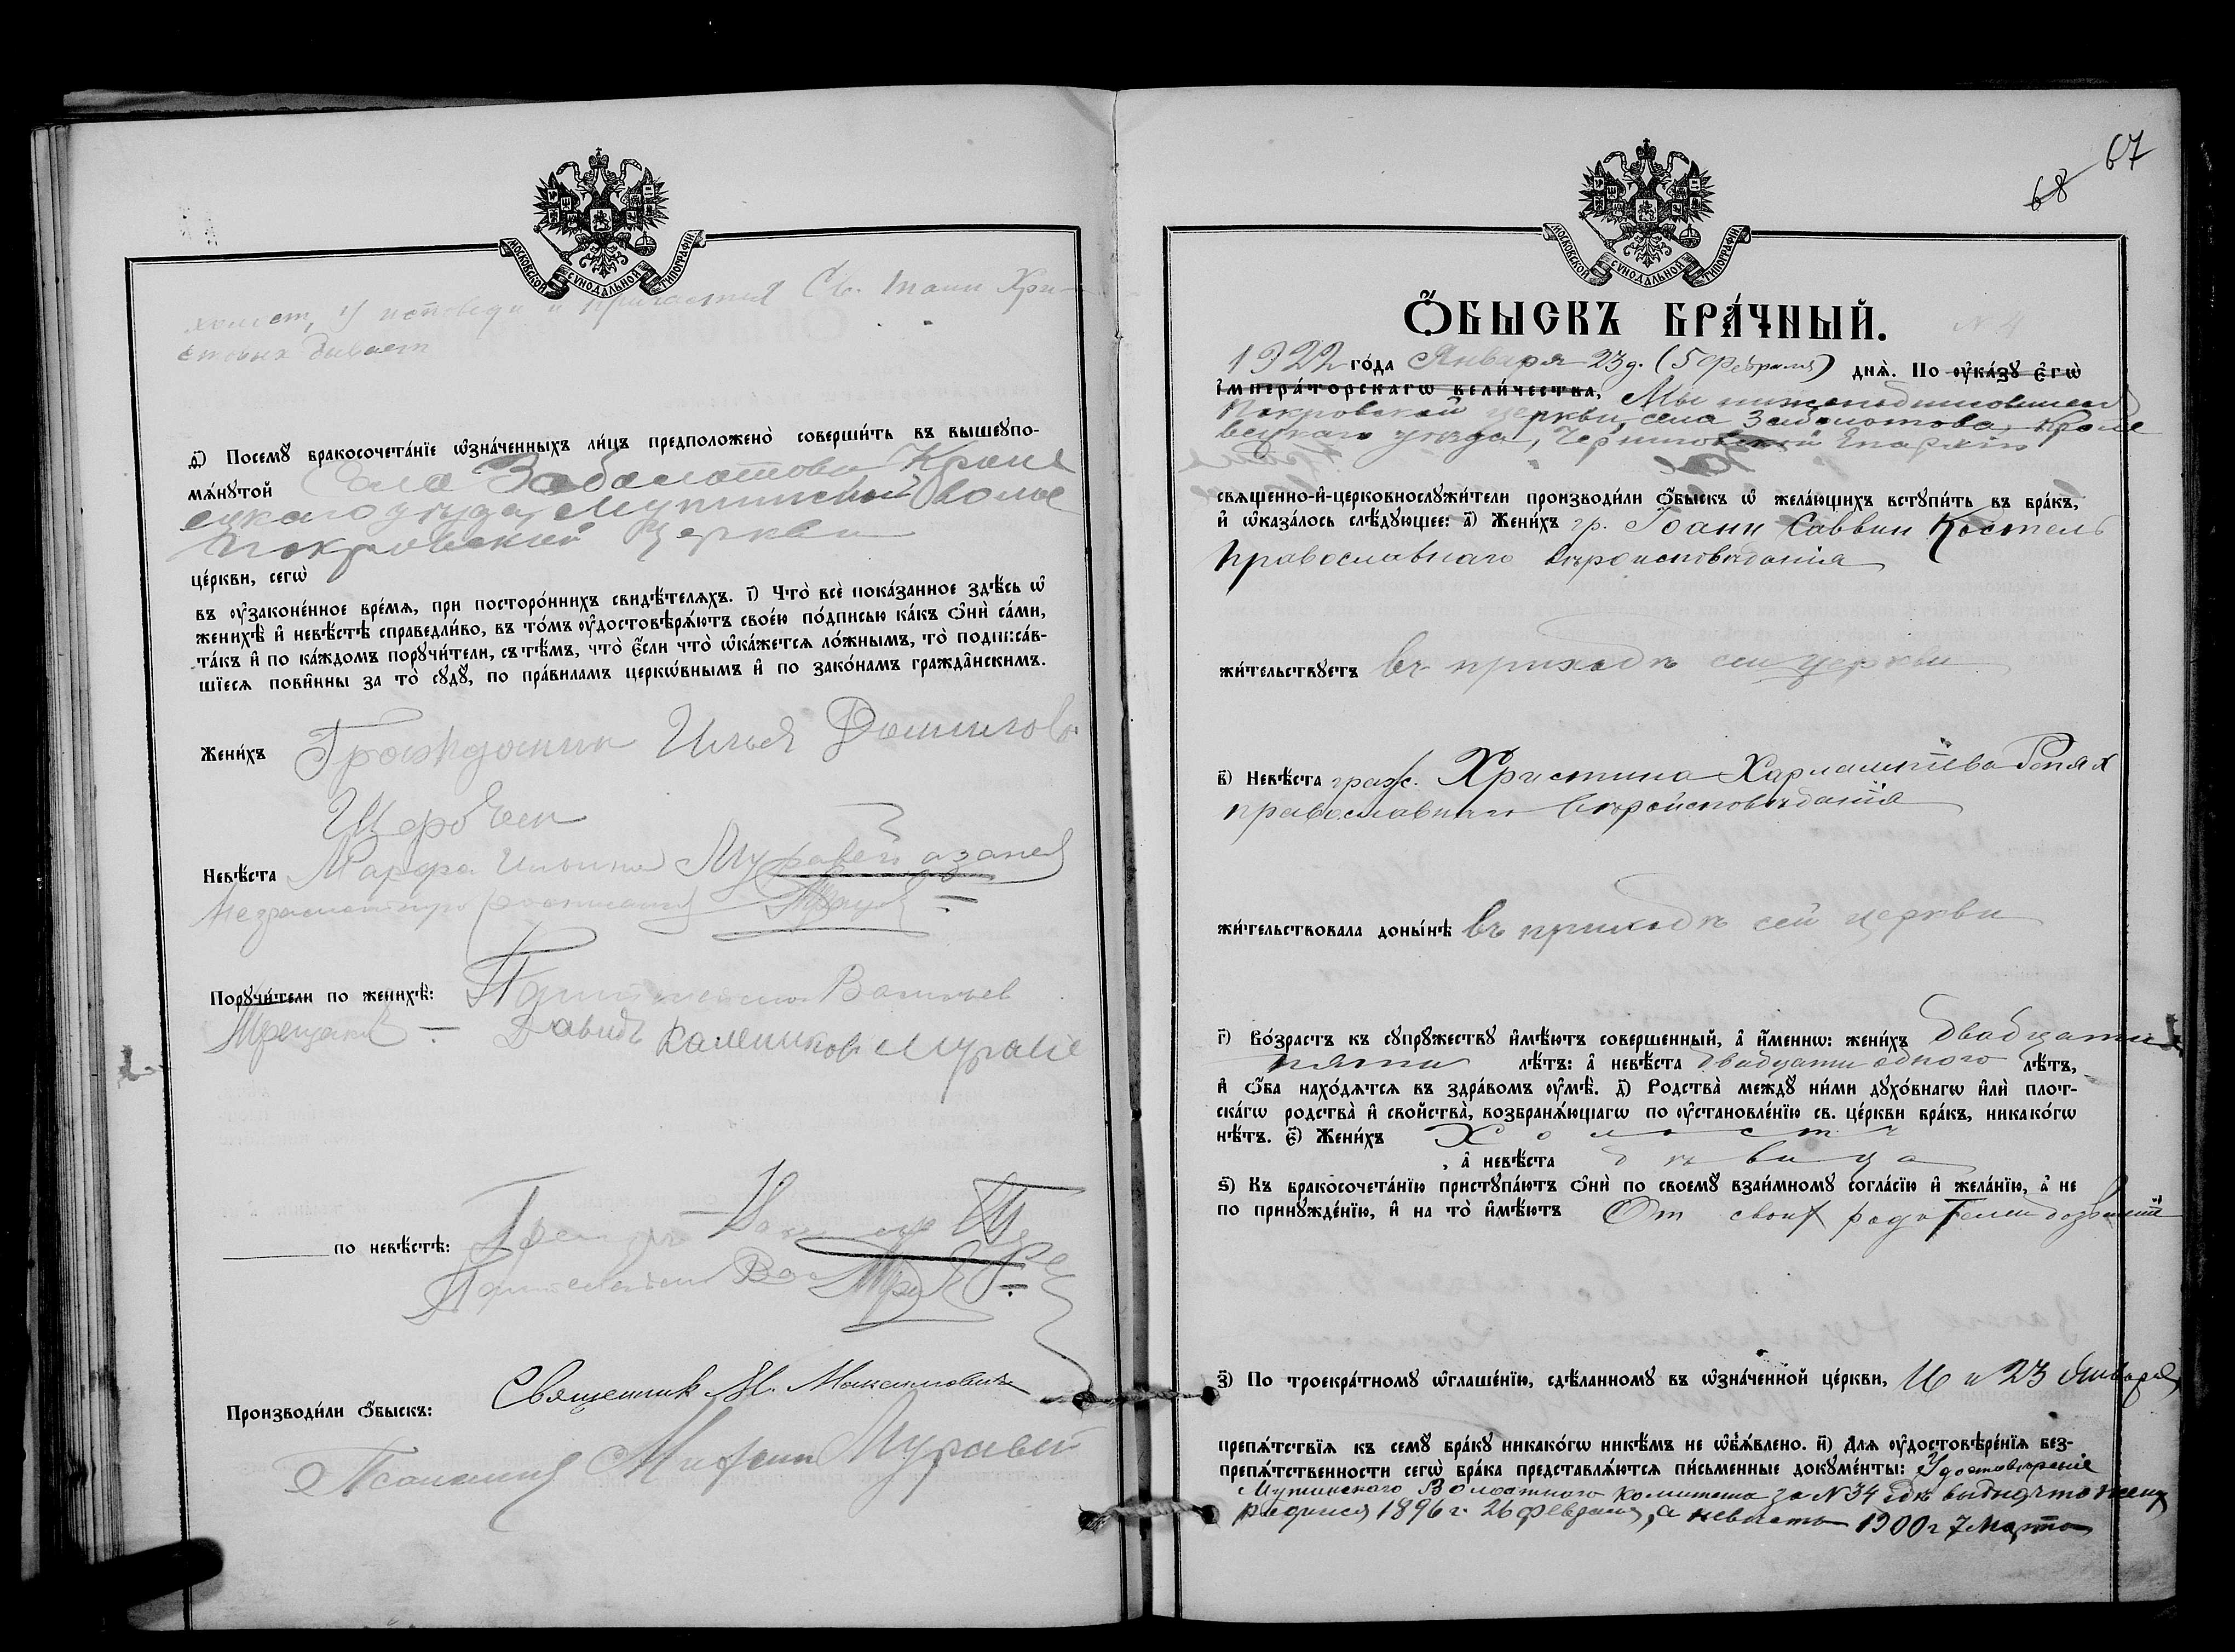 МОСКОВСКОЙ СѴНОДАЛЬНОЙ ТИПОГРАФІИ
и причастия Св. таин Хри-
стовых бывает
д҃) Посемꙋ̀ бракосочета́нїе ѡ҆зна́ченныхъ ли́цъ предположено̀ соверши́ть въ вышеꙋпо-
мѧ́нꙋтой Села Заболотова Кроле
вецкаго уезда, Мутинской волос
Покровской Церкви
це́ркви, сегѡ̀
въ ᲂу҆законе́нное вре́мѧ, при посторо́ннихъ свидѣ́телѧхъ. і҃) Что̀ всѐ пока́занное здѣ́сь ѡ҆
женихѣ̀ и҆ невѣ́стѣ справедли́во, въ то́мъ ᲂу҆достовѣрѧ́ютъ свое́ю по́дписью ка́къ ѻ҆нѝ са́ми,
та́къ и҆ по ка́ждомъ порꙋчи́тели, съ тѣ́мъ, что̀ є҆́сли что̀ ѡ҆ка́жетсѧ ло́жнымъ, то̀ подписа́в-
шїесѧ пови́нны за то̀ сꙋдꙋ̀, по пра́виламъ церкѡ́внымъ и҆ по зако́намъ гражда́нскимъ.
Жени́хъ Гражданин Илья Данилов
Щербак
Невѣ́ста Марфа Ильина Муравей а за нея
неграмотную росписался
Порꙋчи́тели по женихѣ̀: Пантелеимон Васильев
Трещак Давидъ Калеников Мураве
по невѣ́стѣ:
Пантелеимон Вас
Производи́ли ѻ҆́быскъ: Священник М. Максимович
Псаломщик Муравей
67
68
МОСКОВСКОЙ СѴНОДАЛЬНОЙ ТИПОГРАФІИ
Ѻ҆́БЫСКЪ БРА́ЧНЫЙ.
N 4
1922 го́да Января 23 д. (5 февраля) днѧ̀. По ᲂу҆ка́зꙋ є҆гѡ̀
і҆мпера́торскагѡ вели́чества, Мы нижеподписовшиеся
Покровской церкви села Заболотова, Кроле
вецкаго уезда, Черниговской Епархии
свѧщенно-и҆-церковнослꙋжи́тели производи́ли ѻ҆́быскъ ѡ҆ жела́ющихъ встꙋпи́ть въ бра́къ,
и҆ ѡ҆каза́лось слѣ́дꙋющее: а҃) Жени́хъ гр. Іоанн Саввин Костель
православнаго вероисповѣдания
жи́тельствꙋетъ въ приходѣ сей церкви
в҃) Невѣ́ста граж. Христина Харлампіева Репях
православнаго вѣроисповѣданія
жи́тельствовала доны́нѣ въ приходѣ сей церкви
г҃) Во́зрастъ къ сꙋпрꙋ́жествꙋ и҆мѣ́ютъ соверше́нный, а҆ и҆́меннѡ: жени́хъ двадцати
пяти лѣ́тъ: а҆ невѣ́ста двадцати одного лѣ́тъ,
и҆ ѻ҆́ба нахо́дѧтсѧ въ здра́вомъ ᲂу҆мѣ̀. д҃) Родства̀ междꙋ̀ ни́ми дꙋхо́внагѡ и҆лѝ плот-
ска́гѡ родства̀ и҆ свойства̀, возбранѧ́ющагѡ по ᲂу҆становле́нїю св. це́ркви бра́къ, никако́гѡ
нѣ́тъ. є҃) Жени́хъ Холостъ
, а҆ невѣ́ста дѣвица
ѕ҃) Къ бракосочета́нїю пристꙋпа́ютъ ѻ҆нѝ по своемꙋ̀ взаи́мномꙋ согла́сїю и҆ жела́нїю, а҆ не
по принꙋжде́нїю, и҆ на то̀ и҆мѣ́ютъ От своих родителей
з҃) По троекра́тномꙋ ѡ҆глаше́нїю, сдѣ́ланномꙋ въ ѡ҆зна́ченной це́ркви, 16 и 23 Января
препѧ́тствїѧ къ семꙋ̀ бра́кꙋ никако́гѡ никѣ́мъ не ѡ҆б̾ѧ́влено. и҃) Для ᲂу҆достовѣре́нїѧ без-
препѧ́тственности сегѡ̀ бра́ка представлѧ́ютсѧ пи́сьменные докꙋме́нты: Удостовѣрение
Мутинскаго Волостного Комитета за N 34 где видно что жених
родился 1896 г. 26 февраля, а невѣста 1900 г 7 Марта